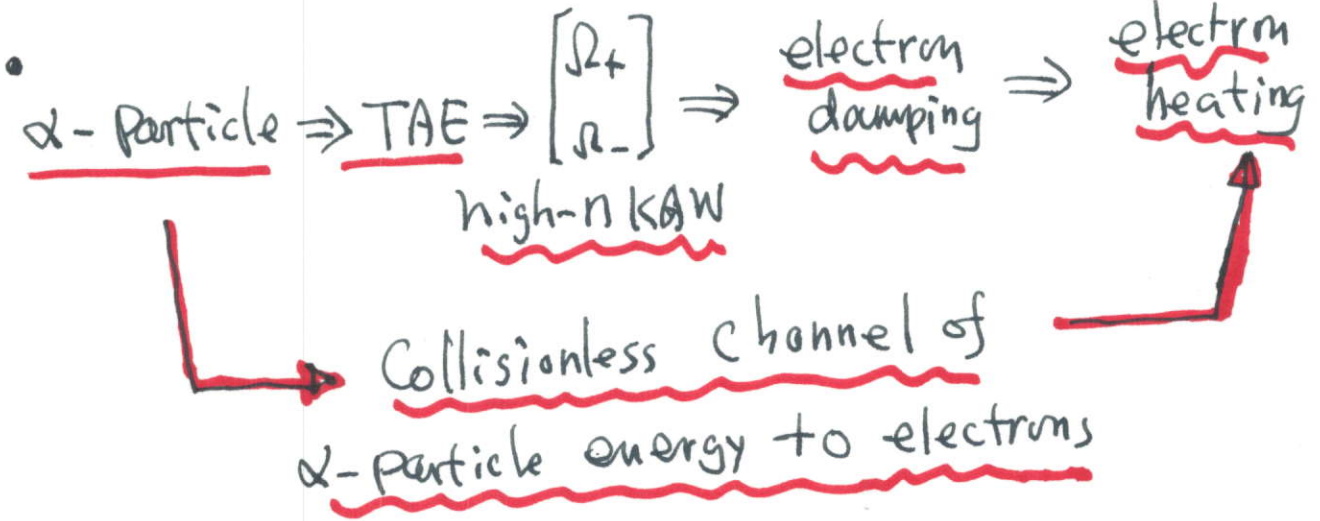 • α-Particle ⇒ TAE ⇒ [Ω+ Ω-] ⇒ electron damping ⇒ electron heating
high-n KAW
Collisionless channel of
α-particle energy to electrons